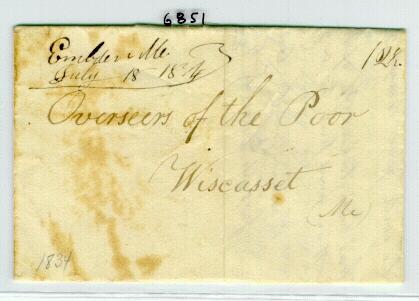 6851
Embden Me.
July 18 1834
Overseers of the Poor
Wiscasset
(Me)
1834